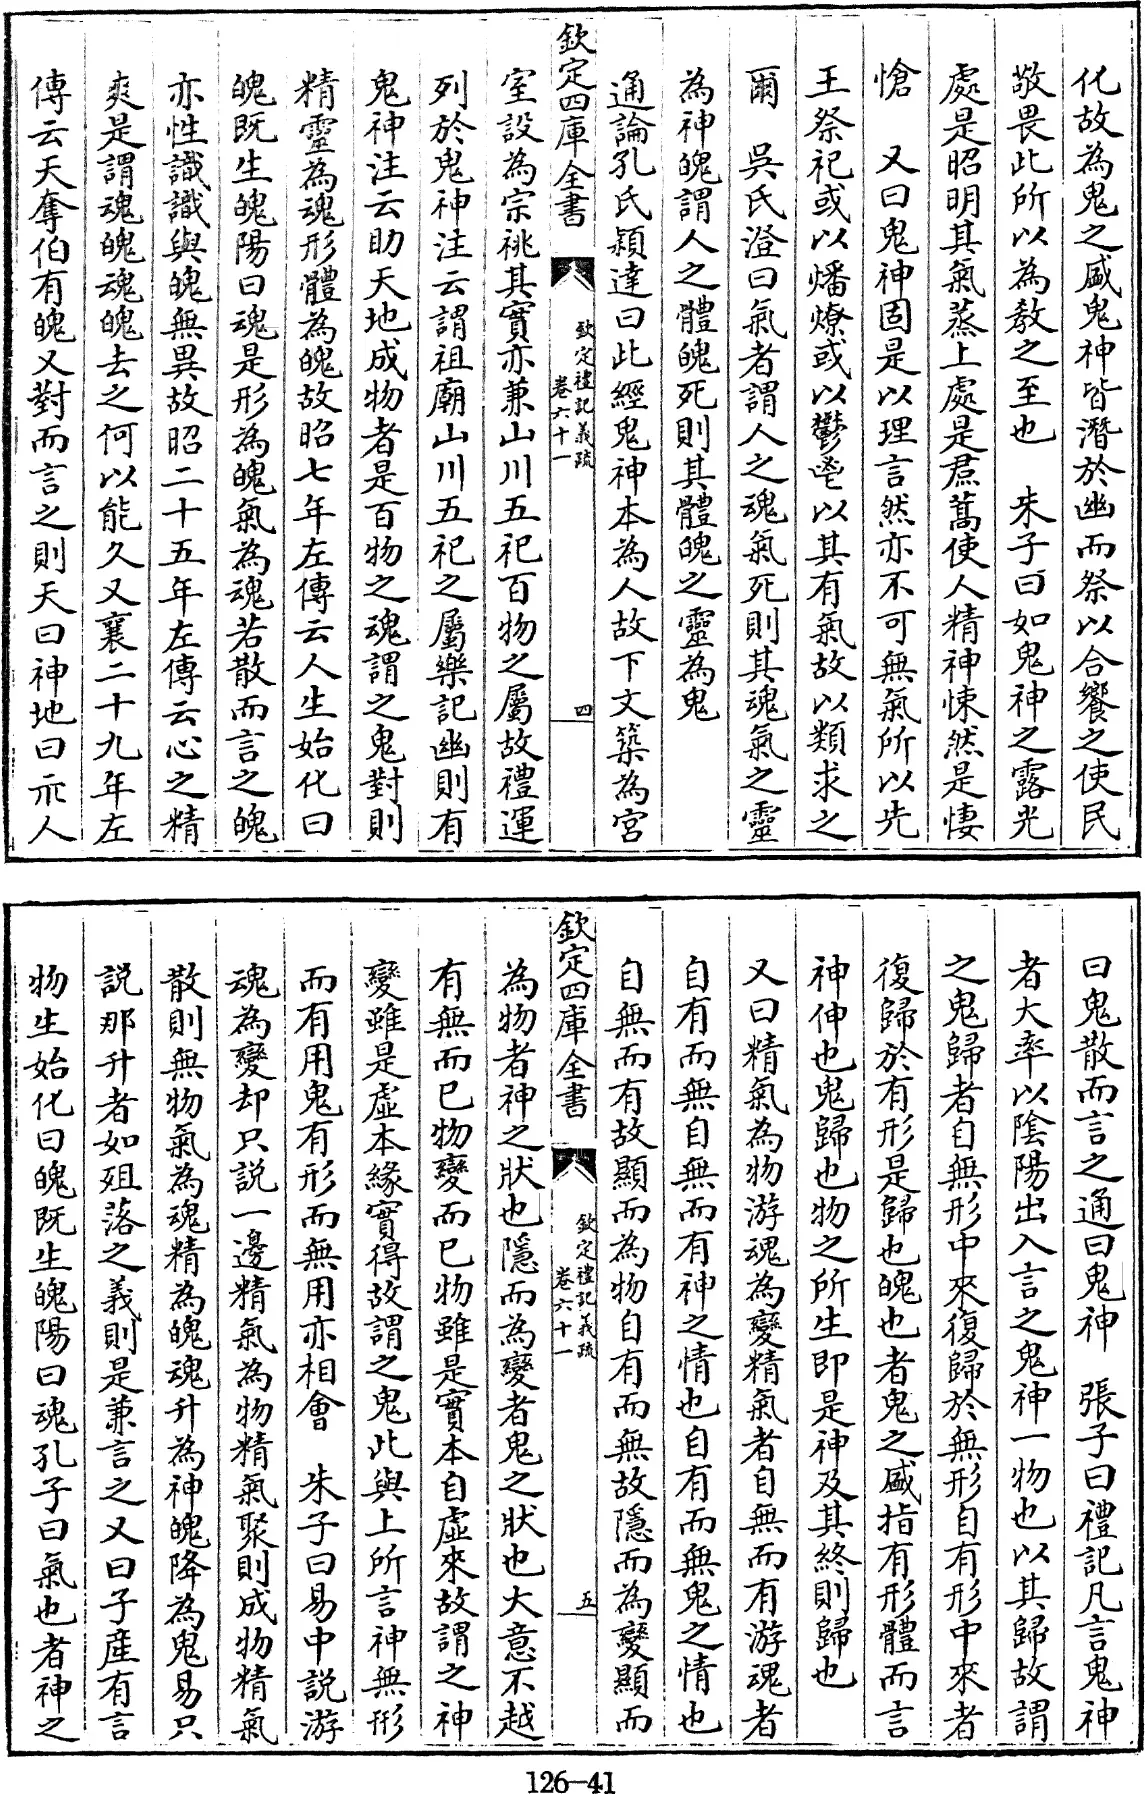 化故為鬼之盛鬼神皆潛於幽而祭以合饗之使民
敬畏此所以為教之至也　朱子曰如鬼神之露光
處是昭明其氣蒸上處是焄蒿使人精神悚然是悽
愴　又曰鬼神固是以理言然亦不可無氣所以先
王祭祀或以燔燎或以鬱鬯以其有氣故以類求之
爾　吳氏澄曰氣者謂人之魂氣死則其魂氣之靈
為神魄謂人之體魄死則其體魄之靈為鬼
通論孔氏穎達曰此經鬼神本為人故下文築為宮
欽定四庫全書
欽定禮記義疏
卷六十一
四
室設為宗祧其實亦兼山川五祀百物之屬故禮運
列於鬼神注云謂祖廟山川五祀之屬樂記幽則有
鬼神注云助天地成物者是百物之魂謂之鬼對則
精靈為魂形體為魄故昭七年左傳云人生始化曰
魄既生魄陽曰魂是形為魄氣為魂若散而言之魄
亦性識識與魄無異故昭二十五年左傳云心之精
爽是謂魂魄魂魄去之何以能久又襄二十九年左
傳云天奪伯有魄又對而言之則天曰神地曰示人
曰鬼散而言之通曰鬼神　張子曰禮記凡言鬼神
者大率以陰陽出入言之鬼神一物也以其歸故謂
之鬼歸者自無形中來復歸於無形自有形中來者
復歸於有形是歸也魄也者鬼之盛指有形體而言
神伸也鬼歸也物之所生即是神及其終則歸也
又曰精氣為物游魂為變精氣者自無而有游魂者
自有而無自無而有神之情也自有而無鬼之情也
自無而有故顯而為物自有而無故隱而為變顯而
欽定四庫全書
欽定禮記義疏
卷六十一
五
為物者神之狀也隱而為變者鬼之狀也大意不越
有無而已物變而已物雖是實本自虛來故謂之神
變雖是虛本緣實得故謂之鬼此與上所言神無形
而有用鬼有形而無用亦相會　朱子曰易中說游
魂為變却只說一邊精氣為物精氣聚則成物精氣
散則無物氣為魂精為魄魂升為神魄降為鬼易只
說那升者如殂落之義則是兼言之又曰子產有言
物生始化曰魄既生魄陽曰魂孔子曰氣也者神之
126—41